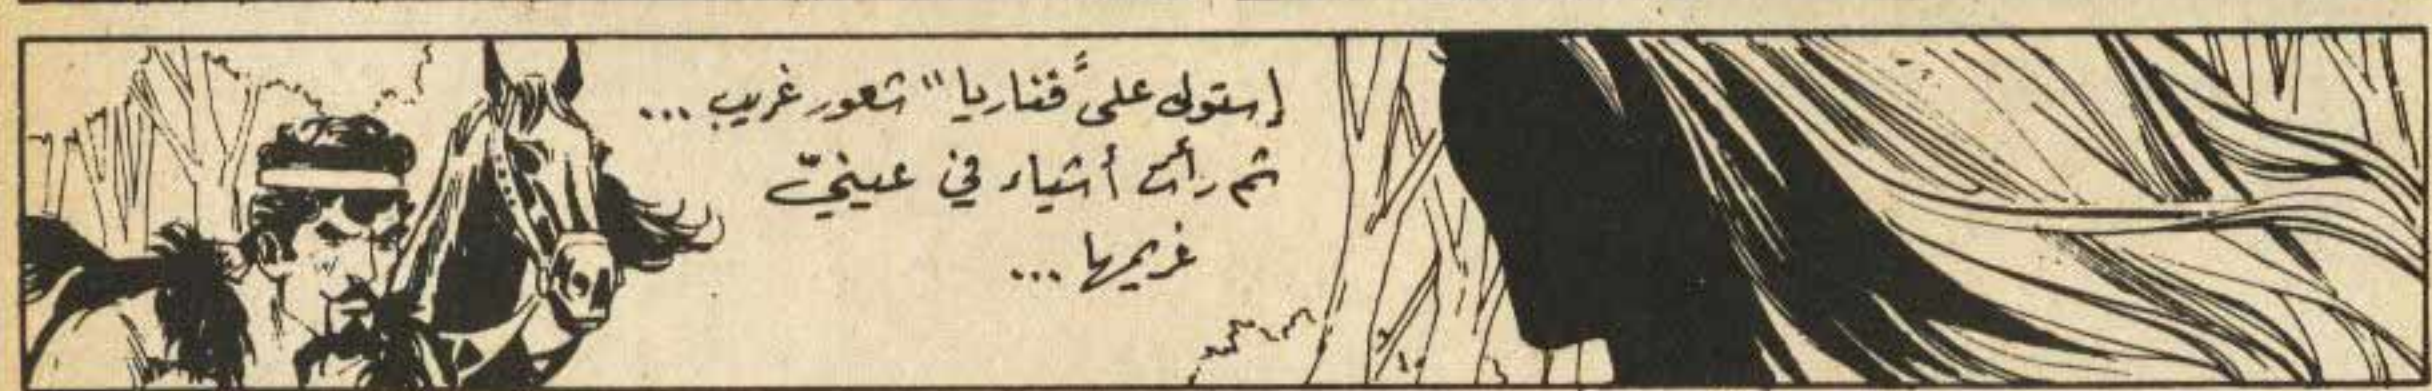 إستولى على "قناريا" شعور غريب ...
ثم رأت أشياء في عينيّ
غريمها ...